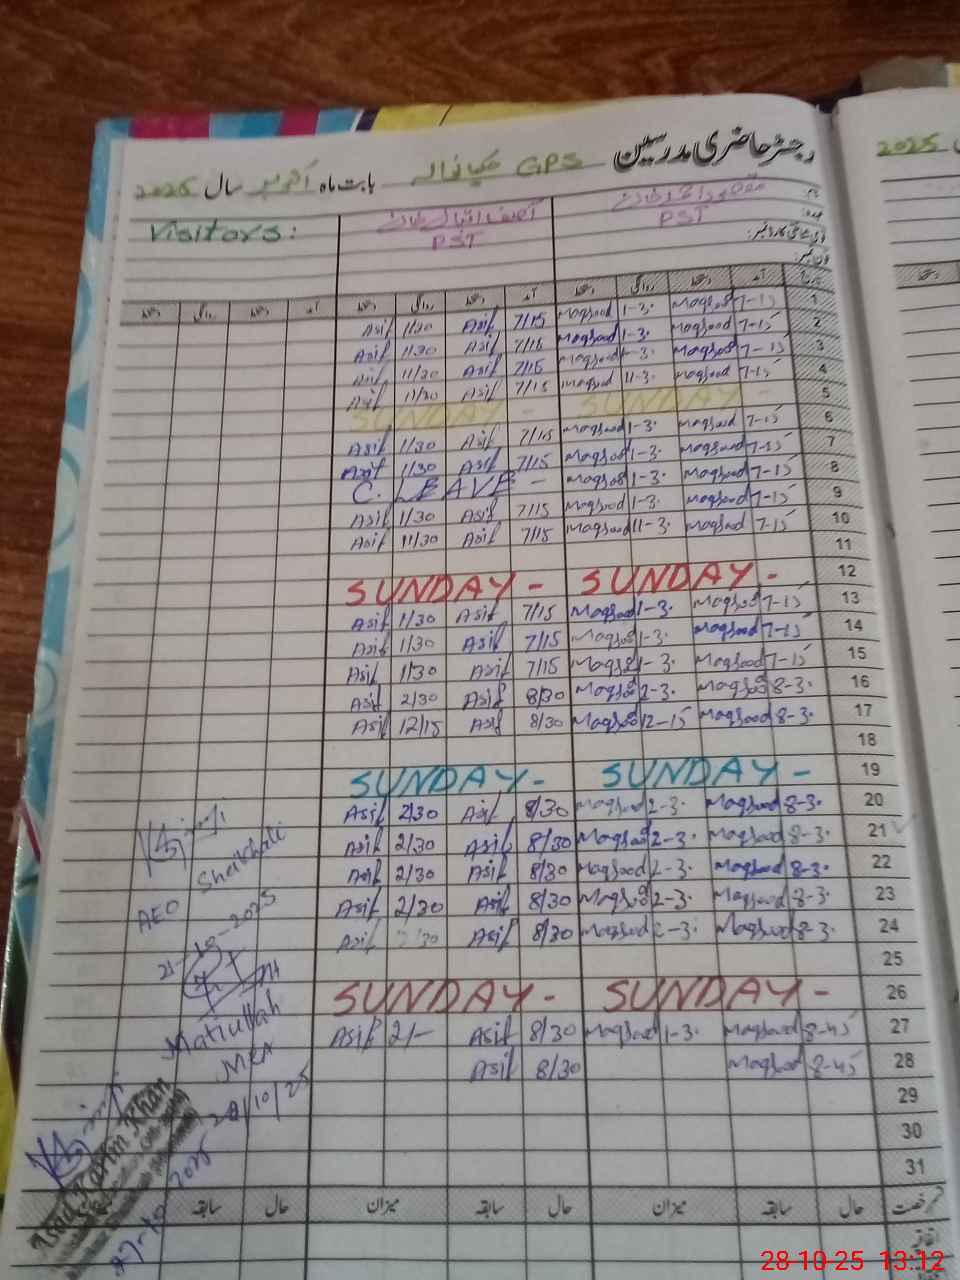 رجسٹر حاضری مدرسین GPS بابت ماہ اکتوبر سال 2025
2025
PST
آصف اقبال خان
PST
Visitors:
آمد دستخط روانگی دستخط آمد دستخط روانگی دستخط آمد دستخط روانگی دستخط
Asif 1/30 Asif 7/15 Maqsood 1-30 Maqsood 7-15 1
Asif 1/30 Asif 7/15 Maqsood 1-30 Maqsood 7-15 2
Asif 11/30 Asif 7/15 Maqsood Maqsood 7-15 3
Asif 11/30 Asif 7/15 Maqsood 11-30 Maqsood 7-15 4
SUNDAY - SUNDAY - 5
Asif 1/30 Asif 7/15 Maqsood 1-30 Maqsood 7-15 6
Asif 1/30 Asif 7/15 Maqsood 1-30 Maqsood 7-15 7
C. LEAVE - Maqsood 1-30 Maqsood 7-15 8
Asif 1/30 Asif 7/15 Maqsood 1-30 Maqsood 7-15 9
Asif 11/30 Asif 7/15 Maqsood 11-30 Maqsood 7-15 10
11
SUNDAY - SUNDAY - 12
Asif 1/30 Asif 7/15 Maqsood 1-30 Maqsood 7-15 13
Asif 1/30 Asif 7/15 Maqsood 1-30 Maqsood 7-15 14
Asif 1/30 Asif 7/15 Maqsood 1-30 Maqsood 7-15 15
Asif 2/30 Asif 8/30 Maqsood 2-30 Maqsood 8-30 16
Asif 12/15 Asif 8/30 Maqsood 12-15 Maqsood 8-30 17
18
SUNDAY - SUNDAY - 19
Asif 2/30 Asif 8/30 Maqsood 2-30 Maqsood 8-30 20
Asif 2/30 Asif 8/30 Maqsood 2-30 Maqsood 8-30 21
Asif 2/30 Asif 8/30 Maqsood 2-30 Maqsood 8-30 22
Asif 2/30 Asif 8/30 Maqsood 2-30 Maqsood 8-30 23
Asif 2/30 Asif 8/30 Maqsood 2-30 Maqsood 8-30 24
25
SUNDAY - SUNDAY - 26
Asif 2/- Asif 8/30 Maqsood 1-30 Maqsood 8-45 27
Asif 8/30 Maqsood 8-45 28
29
30
31
AEO Shaikhali
21-10-2025
Matiullah
MEA
/10/25
Asad Karim Khan
27-10-2025
سابقہ حال میزان سابقہ حال میزان سابقہ حال
28-10-25 13:12